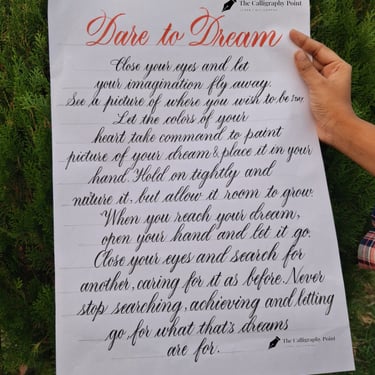 The Calligraphy Point
Dare to Dream
Close your eyes and let
your imagination fly away.
See a picture of where you wish to be
Let the colors of your
heart take command to paint
picture of your dream & place it in your
hand. Hold on tightly and
nature it, but allow it room to grow.
When you reach your dream,
open your hand and let it go.
Close your eyes and search for
another, caring for it as before. Never
stop searching, achieving and letting
go, for what that's dreams
are for.
The Calligraphy Point